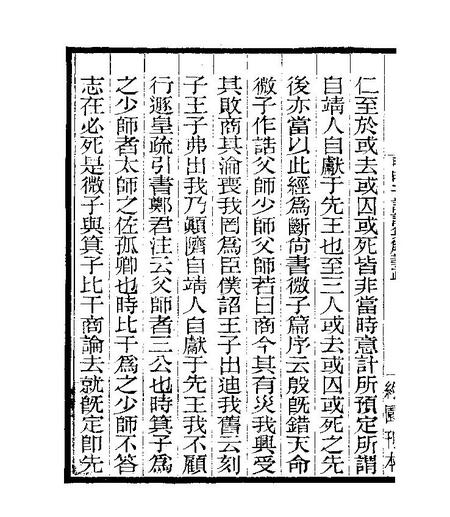 仁至於或去或囚或死皆非當時意計所預定所謂
自靖人自獻于先王也至三人或去或囚或死之先
後亦當以此經為斷尚書微子篇序云殷旣錯天命
微子作誥父師少師父師若曰商今其有災我興受
其敗商其淪喪我罔為臣僕詔王子出迪我舊云刻
子王子弗出我乃顚隮自靖人自獻于先王我不顧
行遯皇疏引書鄭君注云父師者三公也時箕子為
之少師者太師之佐孤卿也時比干為之少師不答
志在必死是微子與箕子比干商論去就旣定卽先